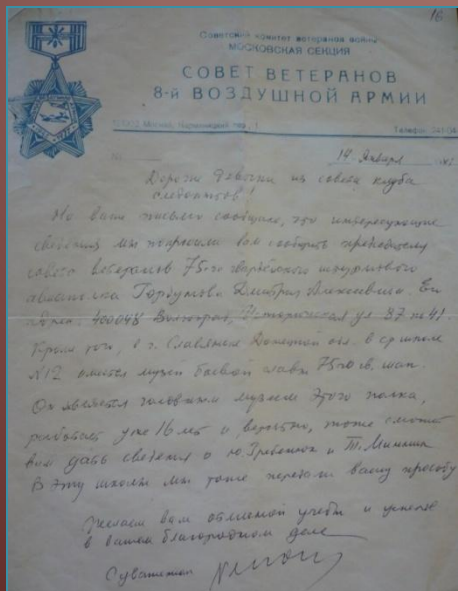 16
Советский комитет ветеранов войны
МОСКОВСКАЯ СЕКЦИЯ
СОВЕТ ВЕТЕРАНОВ
8-й ВОЗДУШНОЙ АРМИИ
Москва, пер.
Телефон
№ 14 января
Дорогие девочки из совета клуба
следопытов!
На ваше письмо сообщаем, что интересующие
сведения мы попросили вам сообщить председателю
совета ветеранов 75-го гвардейского штурмового
авиаполка Горбунова Дмитрия Алексеевича. Его
адрес: 400048 Волгоград, Историческая ул
Кроме того, в г. Славянске Донецкой обл. в ср школе
№12 имеется музей боевой славы 75-го гв. шап.
Он является головным музеем этого полка,
работает уже 16 лет и, вероятно, тоже сможет
вам дать сведения о Ю. Гребенюк и Т.
В эту школу мы тоже передали вашу просьбу
Желаем вам отличной учебы и успехов
в вашем благородном деле
С уважением